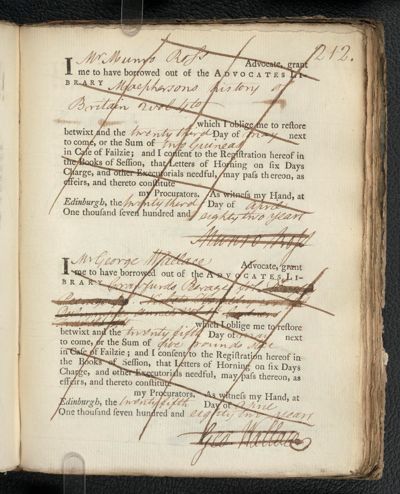 212.
I Mr Munro Ross Advocate, grant
me to have borrowed out of the ADVOCATES LI-
BRARY Macphersons history of
Britain
which I oblige me to reſtore
betwixt and the twenty third Day of May next
to come, or the Sum of two Guineas
in Caſe of Failzie; and I conſent to the Regiſtration hereof in
the Books of Seſſion, that Letters of Horning on ſix Days
Charge, and other Executorials needful, may paſs thereon, as
effeirs, and thereto conſtitute
my Procurators. As witneſs my Hand, at
Edinburgh, the twenty third Day of April
One thouſand ſeven hundred and eighty two years
Munro Ross
I Mr George Wallace Advocate, grant
me to have borrowed out of the ADVOCATES LI-
BRARY Crawfurds Perage
which I oblige me to reſtore
betwixt and the twenty fifth Day of May next
to come, or the Sum of five pounds
in Caſe of Failzie; and I conſent to the Regiſtration hereof in
the Books of Seſſion, that Letters of Horning on ſix Days
Charge, and other Executorials needful, may paſs thereon, as
effeirs, and thereto conſtitute
my Procurators. As witneſs my Hand, at
Edinburgh, the twenty fifth Day of Aprile
One thouſand ſeven hundred and eighty two years
Geo Wallace